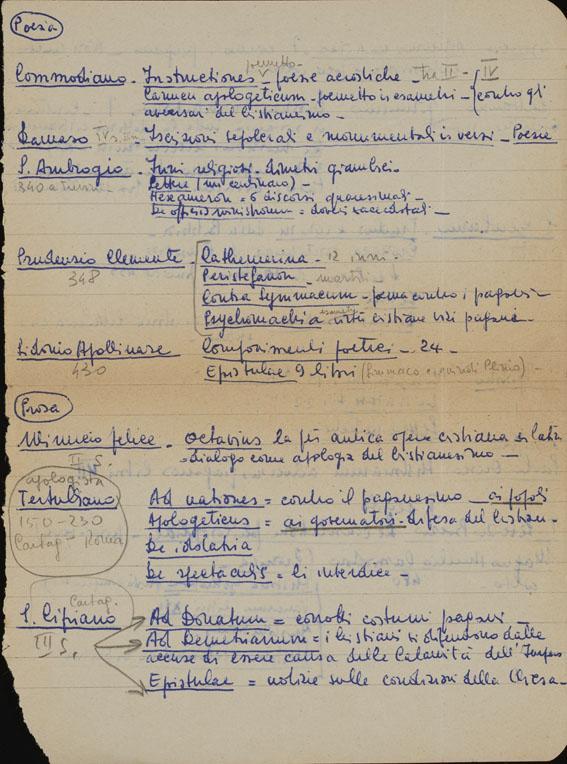 Poesia
poemetto
Commodiano - Instructiones - poesie acrostiche - tra II - IV
Carmen apologeticum - poemetto in esametri - contro gli
avversari del Cristianesimo -
Damaso IV s. Iscrizioni sepolcrali e monumentali in versi - Poesie
S. Ambrogio - Inni religiosi - dimetri giambici -
340 a
Lettere (un centinaio) -
Hexameron = 6 discorsi quaresimali -
De officiis = doveri sacerdotali -
Prudenzio Clemente Cathemerina - 12 inni -
348 Peristefanon - martiri
Contra Symmacum - poema contro i pagani -
Psychomachia virtù cristiane vizi pagani -
Sidonio Apollinare Componimenti poetici - 24 -
430 Epistulae 9 libri (Simmaco e quindi Plinio) -
Prosa
Minucio felice - Octavius la più antica opera cristiana in latino
II s. = dialogo come apologia del Cristianesimo -
apologista
Tertulliano Ad nationes = contro il paganesimo - ai popoli
150 - 230 Apologeticus = ai governatori - difesa dei Cristiani -
Cartag - Roma De idolatria
De spectaculis = li interdice -
Cartag.
S. Cipriano Ad Donatum = corrotti costumi pagani -
III s. Ad Demetrianum = i cristiani si difendono dalle
accuse di essere causa delle calamità dell'Impero
Epistulae = notizie sulle condizioni della Chiesa -